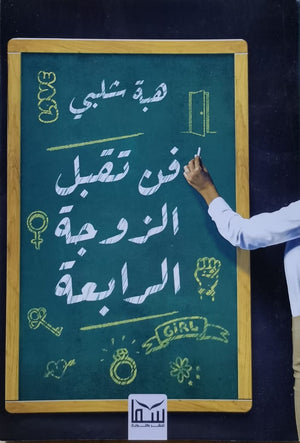 LOVE
هبة شلبي
فن تقبل
الزوجة
الرابعة
GIRL
سما